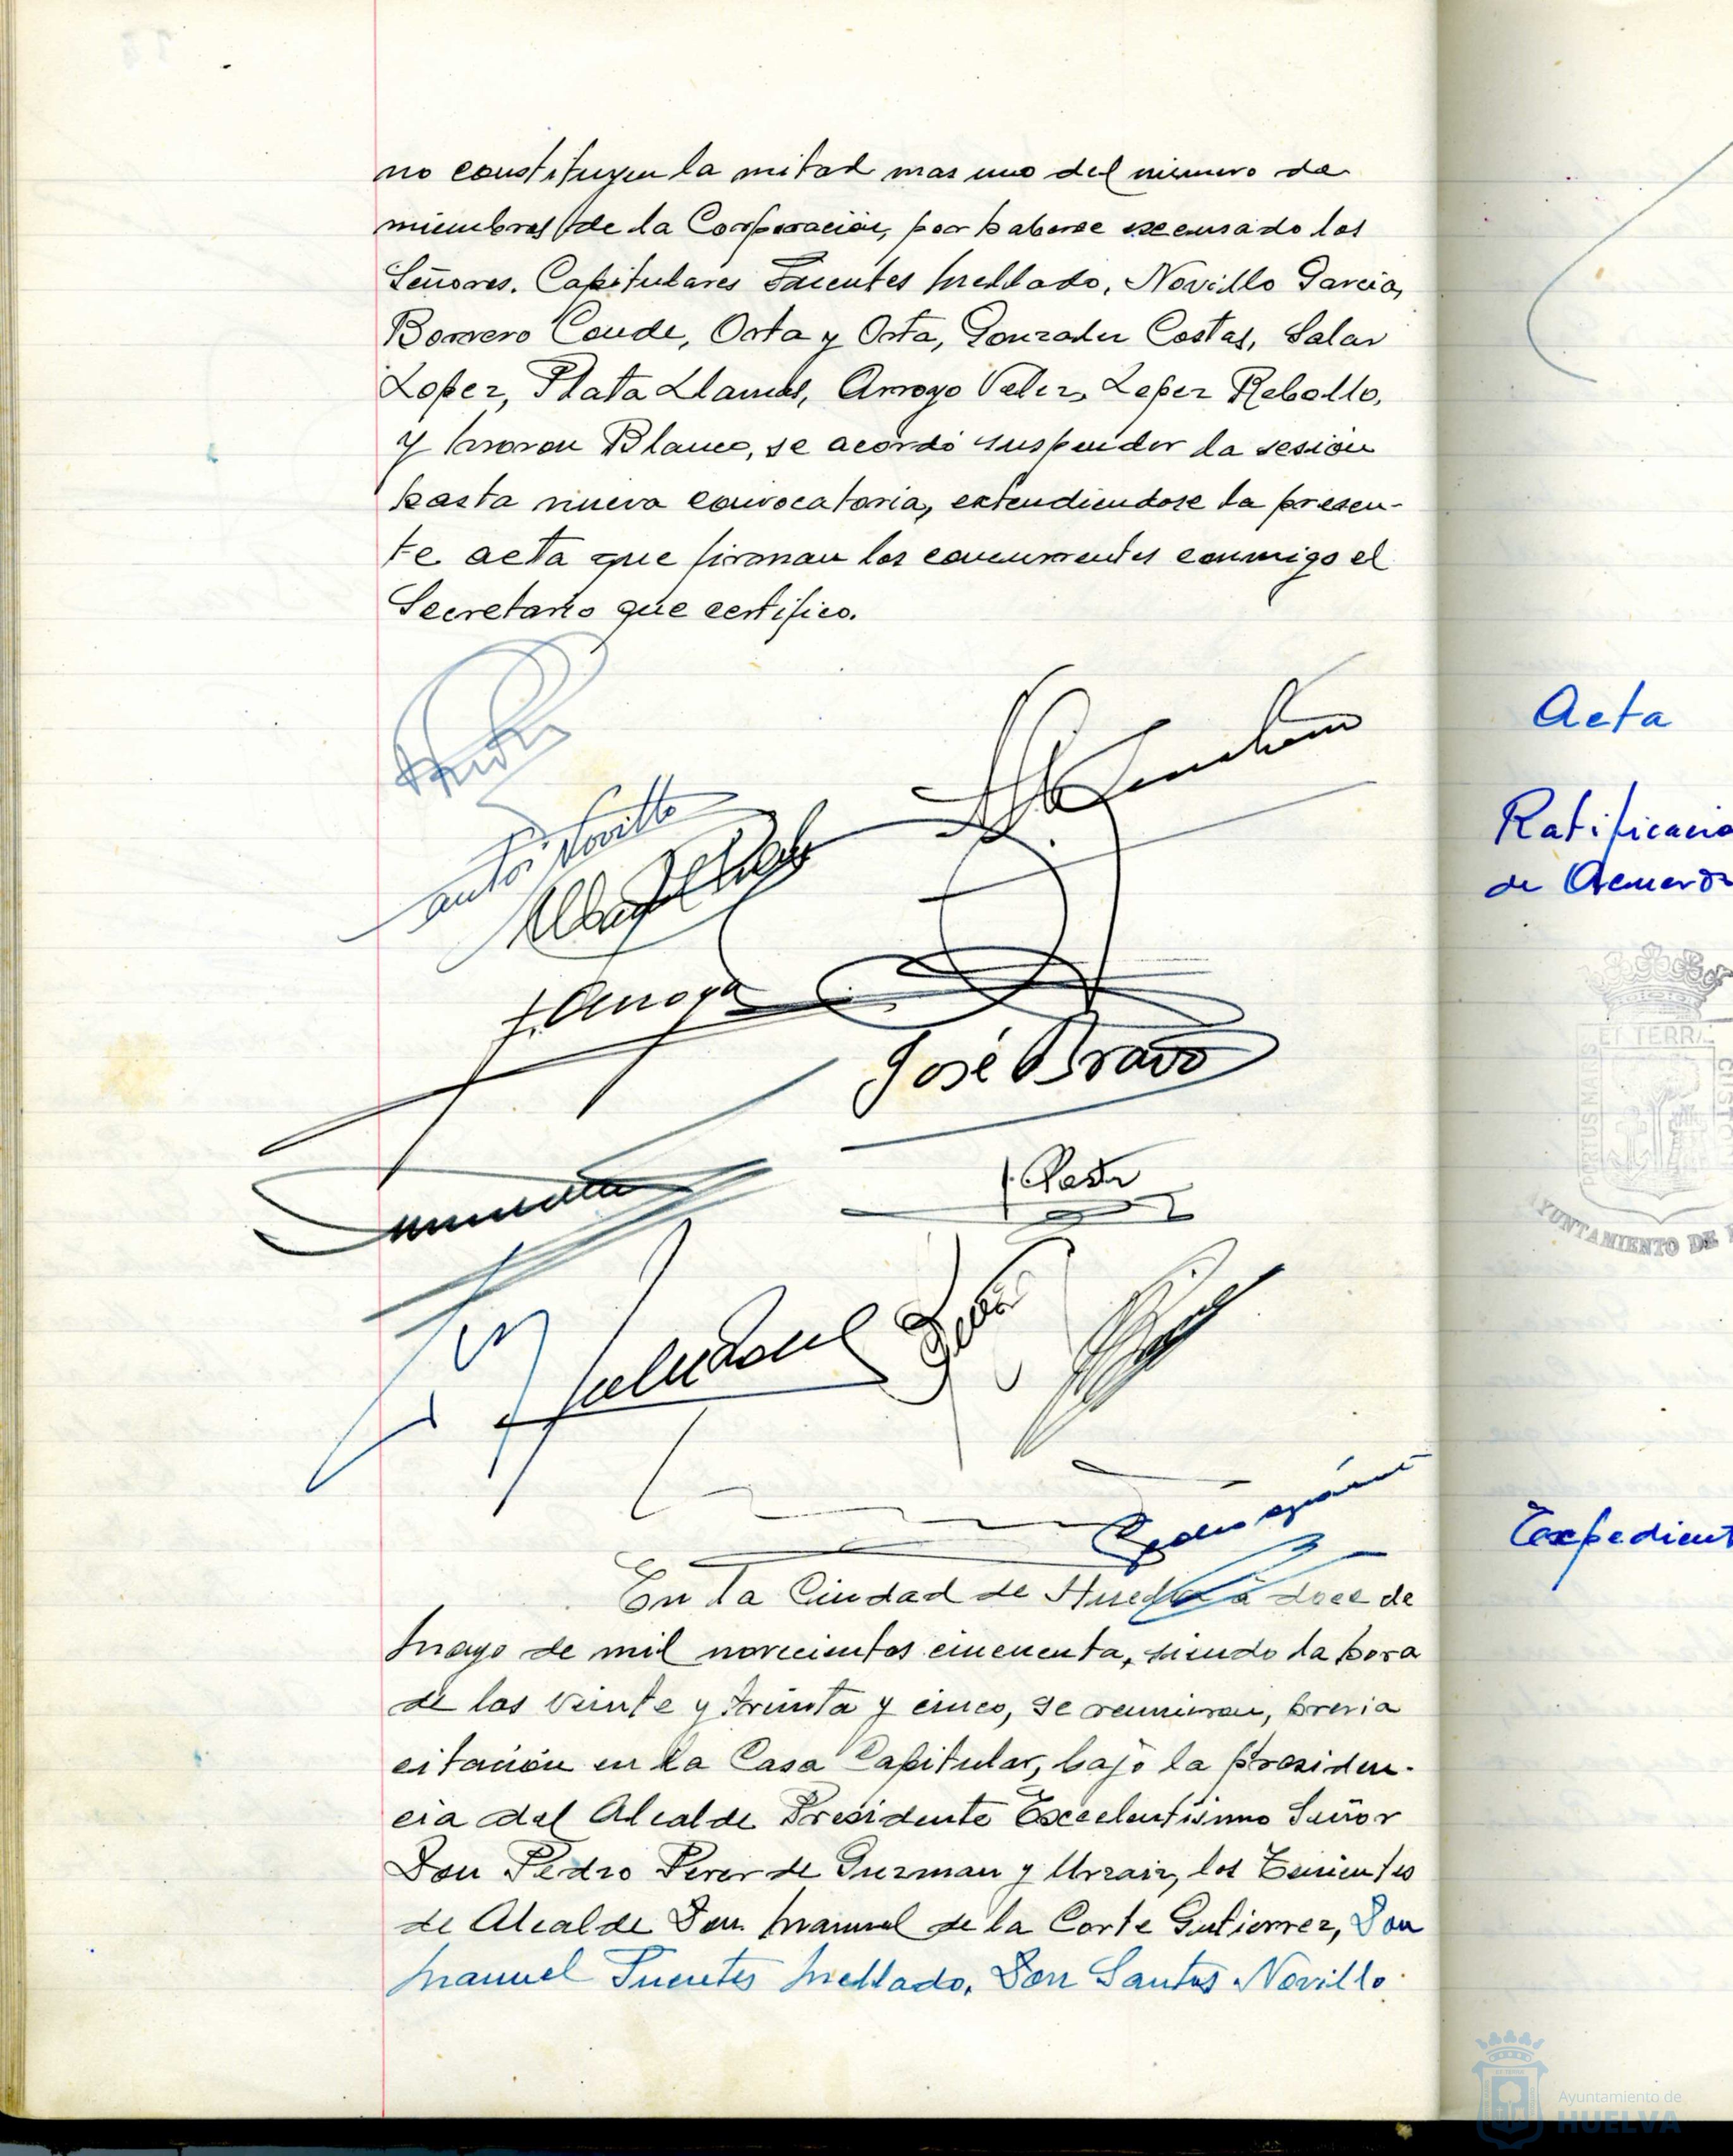 no constituyen la mitad mas uno del número de
miembros de la Corporación, por haberse excusado los
Señores. Capitulares Fuentes Mellado, Novillo Garcia,
Borrero Conde, Orta y Orta, Gonzalez Costas, Salas
Lopez, Plata Llamas, Arroyo Velez, Lopez Rebollo,
y Moron Blanco, se acordó suspender la sesión
hasta nueva convocatoria, extendiendose la presen-
te acta que firman los concurrentes conmigo el
Secretario que certifico.
José Bravo
En la Ciudad de Huelva a doce de
Mayo de mil novecientos cincuenta, siendo la hora
de las veinte y treinta y cinco, se reunieron, previa
citación en la Casa Capitular, bajo la presiden-
cia del Alcalde Presidente Excelentísimo Señor
Don Pedro Perez de Guzman y Urzaiz, los Tenientes
de Alcalde Don Manuel de la Corte Gutierrez, Don
Manuel Fuentes Mellado, Don Santos Novillo
Acta
Ratificacio
de Acuerdo
ET TERRÆ
PORTUS MARIS
AYUNTAMIENTO DE
Expedient
Ayuntamiento de
HUELVA